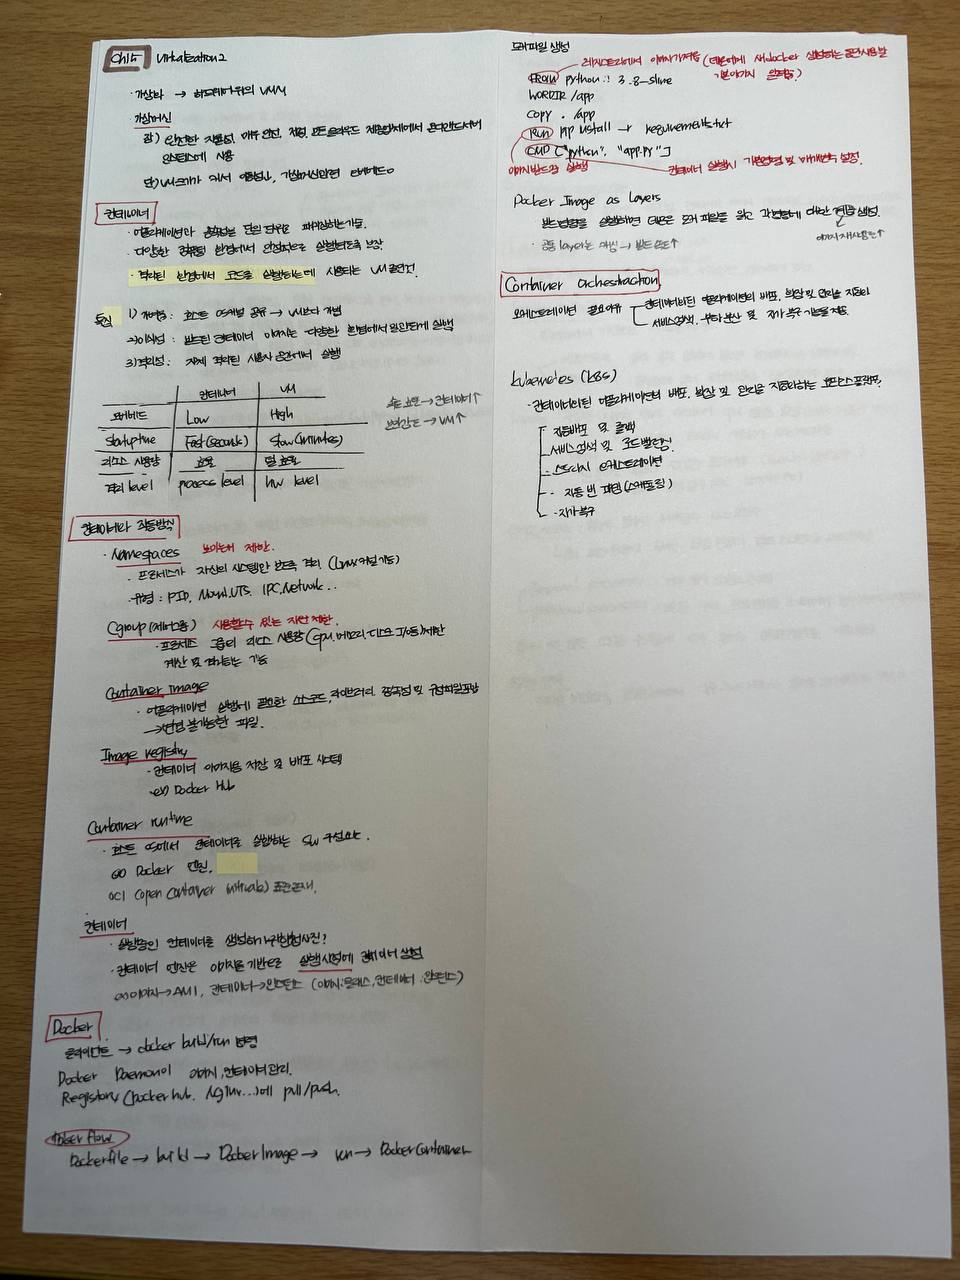 Ch15 Virtualization2
· 가상화 → 하드웨어 위의 VMM
가상머신
인스턴스에 사용
컨테이너
· 어플리케이션과 종속성을 단일 단위로 패키징하는 기술.
· 다양한 컴퓨팅 환경에서 안정적으로 실행되도록 보장
· 격리된 환경에서 코드를 실행하는데 사용되는 VM 같은것.
특징 1) 경량 : 호스트 OS커널 공유 → VM보다 경량
2) 이식성 : 빌드된 컨테이너 이미지는 다양한 환경에서 일관되게 실행
3) 격리성 : 자체 격리된 사용자 공간에서 실행
컨테이너 VM
오버헤드 Low High
startup time Fast(seconds) Slow(minutes)
리소스 사용량 효율 덜 효율
격리 level process level hw level
속도 효율 → 컨테이너↑
보안강도 → VM↑
컨테이너 작동방식
· Namespaces 보이는게 제한.
· 프로세스가 자신의 시스템만 보도록 격리 (Linux 커널 기능)
· 유형 : PID, Mount, UTS, IPC, Network...
Cgroup(제어그룹) 사용할수 있는 자원 제한.
· 프로세스 그룹의 리소스 사용량(cpu, 메모리, 디스크 I/O등)제한
계산 및 격리하는 기능
Container Image
· 어플리케이션 실행에 필요한 소스코드, 라이브러리, 종속성 및 구성파일 포함
→ 변경 불가능한 파일.
Image registry
· 컨테이너 이미지를 저장 및 배포 시스템
ex) Docker Hub
Container runtime
· 호스트 OS에서 컨테이너를 실행하는 SW 구성요소.
ex) Docker 엔진.
OCI (open container initiative) 표준존재.
컨테이너
· 컨테이너 엔진은 이미지를 기반으로 실행시점에 컨테이너 생성
ex) 이미지→AMI, 컨테이너→인스턴스 (이미지:클래스, 컨테이너:인스턴스)
Docker
클라이언트 → docker build/run 명령
Docker Daemon이 이미지, 컨테이너 관리.
Registory (Docker hub, ...)에 pull/push.
Docker flow
Dockerfile → build → Docker Image → run → Docker Container
도커파일 생성
레지스트리에서 이미지가져옴
FROM python : 3.8-slime
WORKDIR /app
copy . /app
Run pip install → requirements.txt
CMD ["python", "app.py"]
이미지빌드중 실행 컨테이너 실행시 기본명령 및 매개변수 설정.
Docker Image as Layers
빌드명령을 실행하면 데몬은 도커 파일을 읽고 각명령에 대한 계층 생성.
· 공통 layer는 캐싱 → 빌드 속도↑ 이미지 재사용성↑
Container Orchestraction
오케스트레이션 필요이유 컨테이너화된 어플리케이션의 배포, 확장 및 관리를 자동화
서비스검색, 부하 분산 및 자가 복구 기능을 제공
kubernetes (k8s)
· 컨테이너화된 어플리케이션의 배포, 확장 및 관리를 자동화하는 오픈소스 플랫폼.
· 자동배포 및 롤백
· 서비스검색 및 로드밸런싱.
· 스토리지 오케스트레이션
· 자동 빈 패킹(스케줄링)
· 자가복구